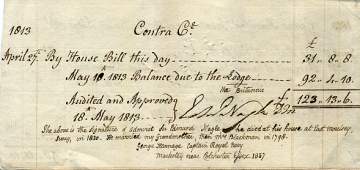 1813 Contra Cr.
£
April 27. By House Bill this day 31 . 8 . 8
May 18. 1813 Balance due to the Lodge 92 . 4 . 10
the Balance
Audited and Approved £ 123 . 13 . 6
18 May 1813 Ed Nagle
The above is the signature of Admiral Sir Edmund Nagle he died at his house at East
in 1830. He married my Grandmother, then Mrs Blackman in 1798.
George Manage Captain Royal Navy
near Colchester Essex. 1887